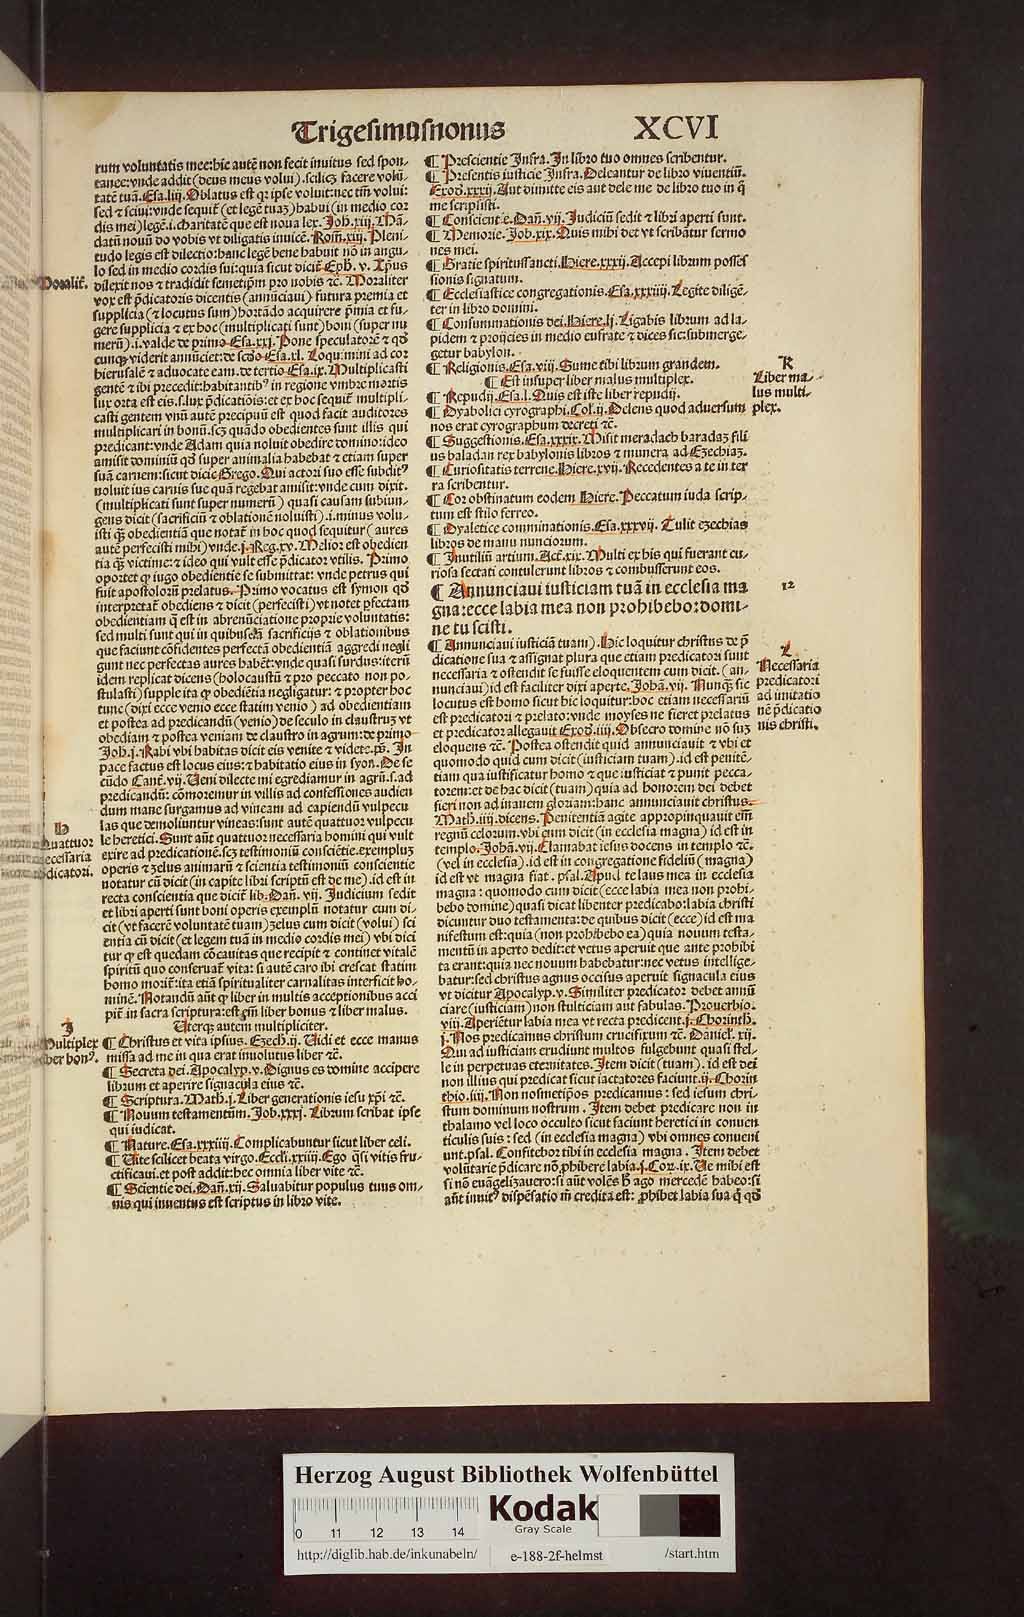 Trigesimusnonus XCVI
rum voluntatis mee: hic autē non fecit inuitus sed spon-
tanee: vnde addit (deus meus volui). scilicz facere volū-
tatē tuā. Esa. liij. Oblatus est qr ipse voluit: nec tm̄ volui:
sed ⁊ sciui: vnde sequit̄ (et legē tuaʒ) habui (in medio cor
dis mei) legē. i. charitatē que est noua lex. Joh. xiij. Mā-
datū nouū do vobis vt diligatis inuicē. Rom̄. xiij. Pleni-
tudo legis est dilectio: hanc legē bene habuit nō in angu-
lo sed in medio cordis sui: quia sicut dicit̄ Eph̄. v. Xp̄us
dilexit nos ⁊ tradidit semetip̄m pro nobis ⁊c̄. Moraliter
vox est p̄dicatoris dicentis (annūciaui) futura premia et
supplicia (⁊ locutus sum) hortādo acquirere p̄mia et fu-
gere supplicia ⁊ ex hoc (multiplicati sunt) boni (super nu
merū) .i. valde de primo Esa. xxj. Pone speculatorē ⁊ qḋ
cunqʒ viderit annūciet: de scḋo Esa. xl. Loquimini ad cor
hierusalē ⁊ aduocate eam. de tertio Esa. ix. Multiplicasti
gentē ⁊ ibi precedit: habitantibꝰ in regione vmbre mortis
lux orta est eis. s. lux p̄dicatiōis: et ex hoc sequit̄ multipli-
casti gentem vnū autē precipuū est quod facit auditores
multiplicari in bonū. scʒ quādo obedientes sunt illis qui
predicant: vnde Adam quia noluit obedire domino: ideo
amisit dominiū qḋ super animalia habebat ⁊ etiam super
suā carnem: sicut dicit Grego. Qui actori suo esse subditꝰ
noluit ius carnis sue quā regebat amisit: vnde cum dixit.
(multiplicati sunt super numerū) quasi causam subiun-
gens dicit (sacrificiū ⁊ oblationē noluisti) .i. minus volu-
isti qʒ obedientiā que notat̄ in hoc quod sequitur (aures
autē perfecisti mihi) vnde. j. Reg. xv. Melior est obedien
tia qʒ victime: ⁊ ideo qui vult esse p̄dicator vtilis. Primo
oportet ꝙ iugo obedientie se submittat: vnde petrus qui
fuit apostolorū prelatus. Primo vocatus est symon qḋ
interpretat̄ obediens ⁊ dicit (perfecisti) vt notet ꝑfectam
obedientiam q̄ est in abrenūciatione proprie voluntatis:
sed multi sunt qui in quibusdā sacrificijs ⁊ oblationibus
que faciunt cōfidentes perfectā obedientiā aggredi negli
gunt nec perfectas aures habēt: vnde quasi surdus: iterū
idem replicat dicens (holocaustū ⁊ pro peccato non po-
stulasti) supple ita ꝙ obediētia negligatur: ⁊ propter hoc
tunc (dixi ecce venio ecce statim venio) ad obedientiam
et postea ad predicandū (venio) de seculo in claustrʒ vt
obediam ⁊ postea veniam de claustro in agrum: de primo
Joh. j. Rabi vbi habitas dicit eis venite ⁊ videte. ps̄. In
pace factus est locus eius: ⁊ habitatio eius in syon. De se
cūdo Cant̄. vij. Ueni dilecte mi egrediamur in agrū. s. ad
predicandū: cōmoremur in villis ad confessiones audien
dum mane surgamus ad vineam ad capiendū vulpecu
las que demoliuntur vineas: sunt autē quattuor vulpecu
le heretici. Sunt aūt quattuor necessaria homini qui vult
exire ad predicationē. scʒ testimoniū consciētie. exempluʒ
operis ⁊ zelus animarū ⁊ scientia testimoniū conscientie
notatur cū dicit (in capite libri scriptū est de me) .id est in
recta conscientia que dicit̄ lib. Dan̄. vij. Judicium sedit
et libri aperti sunt boni operis exemplū notatur cum di-
cit (vt facerē voluntatē tuam) zelus cum dicit (volui) sci
entia cū dicit (et legem tuā in medio cordis mei) vbi dici
tur ꝙ est quedam cōcauitas que recipit ⁊ continet vitalē
spiritū quo conseruat̄ vita: si autē caro ibi crescat statim
homo morit̄: ita etiā spiritualiter carnalitas interficit ho-
minē. Notandū aūt ꝙ liber in multis acceptionibus acci
pit̄ in sacra scriptura: est em̄ liber bonus ⁊ liber malus.
Uterqʒ autem multipliciter.
¶ Christus et vita ipsius. Ezech. ij. Uidi et ecce manus
missa ad me in qua erat inuolutus liber ⁊c̄.
¶ Secreta dei. Apocalyp. v. Dignus es domine accipere
librum et aperire signacula eius ⁊c̄.
¶ Scriptura. Math. j. Liber generationis iesu xp̄i ⁊c̄.
¶ Nouum testamentūm. Job. xxxj. Librum scribat ipse
qui iudicat.
¶ Nature. Esa. xxxiiij. Complicabuntur sicut liber celi.
¶ Uite scilicet beata virgo. Eccl̄i. xxiiij. Ego qsi vitis fru-
ctificaui. et post addit: hec omnia liber vite ⁊c̄.
¶ Scientie dei. Dan̄. xij. Saluabitur populus tuus om-
nis qui inuentus est scriptus in libro vite.
Moralit̄.
H
quattuor
necessaria
predicatori.
J
Multiplex
liber bonꝰ.
¶ Prescientie Infra. In libro tuo omnes scribentur.
¶ Presentis iusticie Infra. Deleantur de libro viuentiū.
Exod. xxxij. Aut dimitte eis aut dele me de libro tuo in q̄
me scripsisti.
¶ Conscient e. Dan̄. vij. Judiciū sedit ⁊ libri aperti sunt.
¶ Memorie. Job. xix. Quis mihi det vt scribātur sermo
nes mei.
¶ Gratie spiritussancti. Hiere. xxxij. Accepi librum posses
sionis signatum.
¶ Ecclesiastice congregationis. Esa. xxxiiij. Legite diligē-
ter in libro domini.
¶ Consummationis dei. Hiere. lj. Ligabis librum ad la-
pidem ⁊ proijcies in medio eufrate ⁊ dices sic: submerge-
getur babylon.
¶ Religionis. Esa. viij. Sume tibi librum grandem.
¶ Est insuper liber malus multiplex.
¶ Repudij. Esa. l. Quis est iste liber repudij.
¶ Dyabolici cyrographi. Col. ij. Delens quod aduersum
nos erat cyrographum decreti ⁊c̄.
¶ Suggestionis. Esa. xxxix. Misit meradach baradaʒ fili
us baladan rex babylonis libros ⁊ munera ad Ezechiaʒ.
¶ Curiositatis terrene. Hiere. xvij. Recedentes a te in ter
ra scribentur.
¶ Cor obstinatum eodem Hiere. Peccatum iuda scrip-
tum est stilo ferreo.
¶ Dyaletice comminationis. Esa. xxxvij. Tulit ezechias
libros de manu nunciorum.
¶ Inutiliū artium. Act. xix. Multi ex his qui fuerant cu-
riosa sectati contulerunt libros ⁊ combusserunt eos.
¶ Annunciaui iusticiam tuā in ecclesia ma
gna: ecce labia mea non prohibebo: domi-
ne tu scisti.
¶ Annunciaui iusticiā tuam). Hic loquitur christus de p̄
dicatione sua ⁊ assignat plura que etiam predicatori sunt
necessaria ⁊ ostendit se fuisse eloquentem cum dicit. (an-
nunciaui) id est faciliter dixi aperte. Johā. vij. Nunqʒ sic
locutus est homo sicut hic loquitur: hoc etiam necessariū
est predicatori ⁊ prelato: vnde moyses ne fieret prelatus
et predicator allegauit Exod. iiij. Obsecro domine nō suʒ
eloquens ⁊c̄. Postea ostendit quid annunciauit ⁊ vbi et
quomodo quid cum dicit (iusticiam tuam) .id est penitē-
tiam qua iustificatur homo ⁊ que iusticiat ⁊ punit pecca-
torem: et de hac dicit (tuam) quia ad honorem dei debet
fieri non ad inanem gloriam: hanc annunciauit christus.
Math. iiij. dicens. Penitentiā agite appropinquauit em̄
regnū celorum. vbi cum dicit (in ecclesia magna) id est in
templo. Johā. vij. Clamabat iesus docens in templo ⁊c̄.
(vel in ecclesia). id est in congregatione fideliū (magna)
id est vt magna fiat. psal. Apud te laus mea in ecclesia
magna: quomodo cum dicit (ecce labia mea non prohi-
bebo domine) quasi dicat libenter predicabo: labia christi
dicuntur duo testamenta: de quibus dicit (ecce) id est ma
nifestum est: quia (non prohibebo ea) quia nouum testa-
mentū in aperto dedit: et vetus aperuit que ante prohibi
ta erant: quia nec nouum habebatur: nec vetus intellige-
batur: sed christus agnus occisus aperuit signacula eius
vt dicitur Apocalyp. v. Similiter predicator debet annū
ciare (iusticiam) non stulticiam aut fabulas. Prouerbio.
viij. Aperiētur labia mea vt recta predicent. j. Chorinth.
j. Nos predicamus christum crucifixum ⁊c̄. Daniel. xij.
Qui ad iusticiam erudiunt multos fulgebunt quasi stel-
le in perpetuas eternitates. Item dicit (tuam). id est dei
non illius qui predicat sicut iactatores faciunt. ij. Chorin
thio. iiij. Non nosmetip̄os predicamus: sed iesum chri-
stum dominum nostrum. Item debet predicare non in
thalamo vel loco occulto sicut faciunt heretici in conuen
ticulis suis: sed (in ecclesia magna) vbi omnes conueni
unt. psal. Confitebor tibi in ecclesia magna. Item debet
volūtarie p̄dicare nō ꝓhibere labia. j. Cor. ix. Ue mihi est
si nō euāgelizauero: si aūt volēs h̄ ago mercedē habeo: si
aūt inuitꝰ dispēsatio m̄ credita est: ꝓhibet labia sua q̄ qḋ
K
Liber ma-
lus multi-
plex.
12
L
Necessaria
predicatori
ad imitatio
nē p̄dicatio
nis christi.
Herzog August Bibliothek Wolfenbüttel
0 11 12 13 14
Kodak
Gray Scale
http://diglib.hab.de/inkunabeln/ e-188-2f-helmst /start.htm